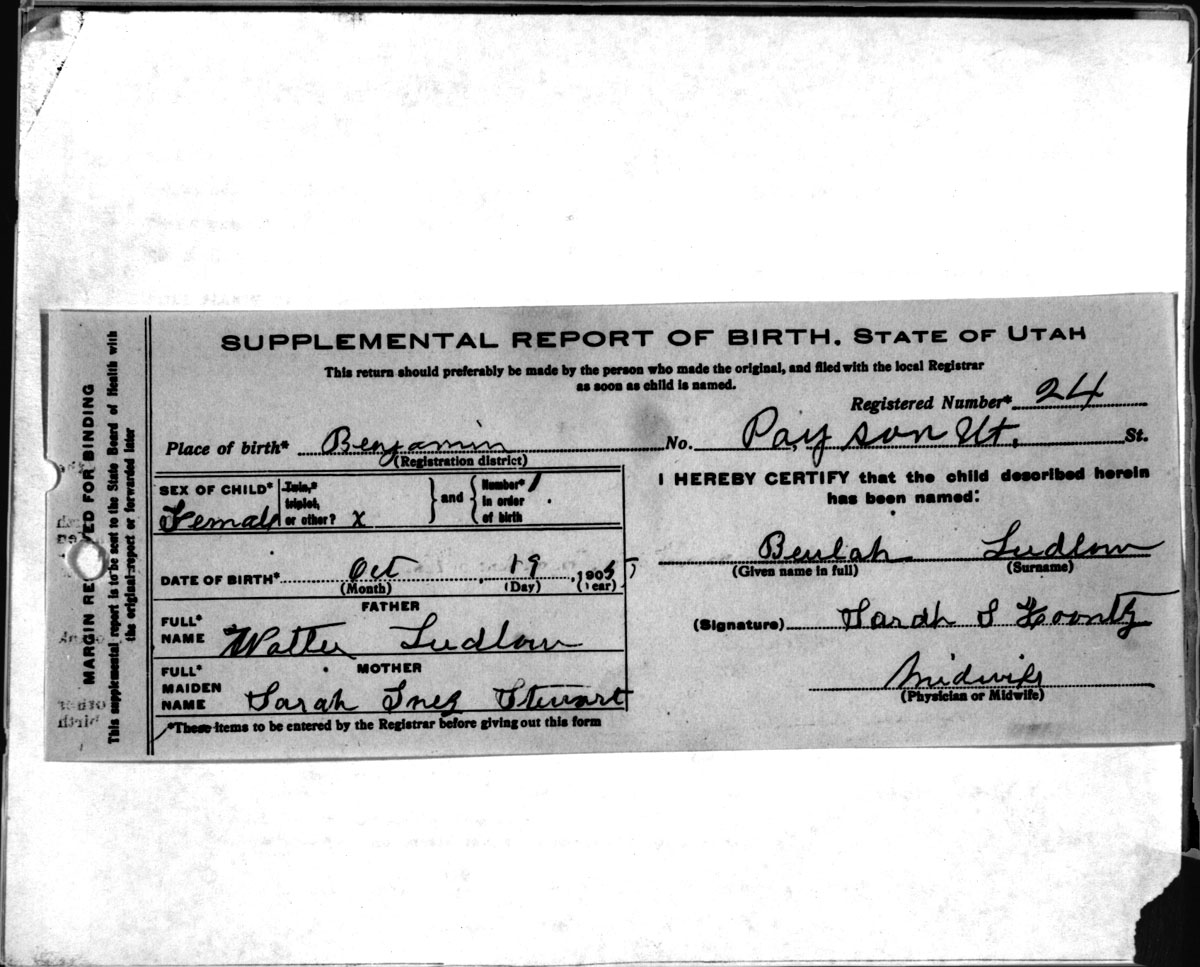 SUPPLEMENTAL REPORT OF BIRTH. STATE OF UTAH
This return should preferably be made by the person who made the original, and filed with the local Registrar
as soon as child is named.
Registered Number* 24
Place of birth* Benjamin No. Payson Ut. St.
(Registration district)
SEX OF CHILD* Female
Twin,*
triplet,
or other? x
and
Number* 1
in order
of birth
DATE OF BIRTH* Oct 19, 1905
(Month) (Day) (Year)
FATHER
FULL*
NAME Walter Ludlow
MOTHER
FULL*
MAIDEN
NAME Sarah Inez Stewart
*These items to be entered by the Registrar before giving out this form
I HEREBY CERTIFY that the child described herein
has been named:
Beulah Ludlow
(Given name in full) (Surname)
(Signature) Sarah S Koontz
Midwife
(Physician or Midwife)
MARGIN RESERVED FOR BINDING
This supplemental report is to be sent to the State Board of Health with
the original report or forwarded later